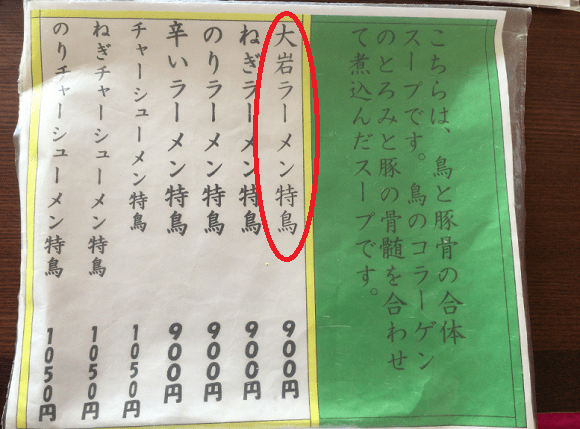 こちらは、鳥と豚骨の合体
スープです。鳥のコラーゲン
のとろみと豚の骨髄を合わせ
て煮込んだスープです。
大岩ラーメン特鳥 900円
ねぎラーメン特鳥 900円
のりラーメン特鳥 900円
辛いラーメン特鳥 900円
チャーシューメン特鳥 1050円
ねぎチャーシューメン特鳥 1050円
のりチャーシューメン特鳥 1050円